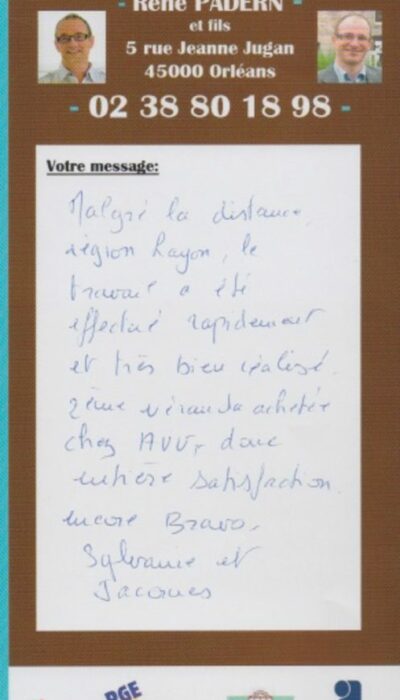 - René PADERN -
et fils
5 rue Jeanne Jugan
45000 Orléans
- 02 38 80 18 98 -
Votre message:
Malgré la distance,
région Layon, le
travail a été
effectué rapidement
et très bien réalisé.
2ème véranda achetée
chez AVV, donc
entière satisfaction.
encore Bravo.
Sylvanie et
Jacques
RGE